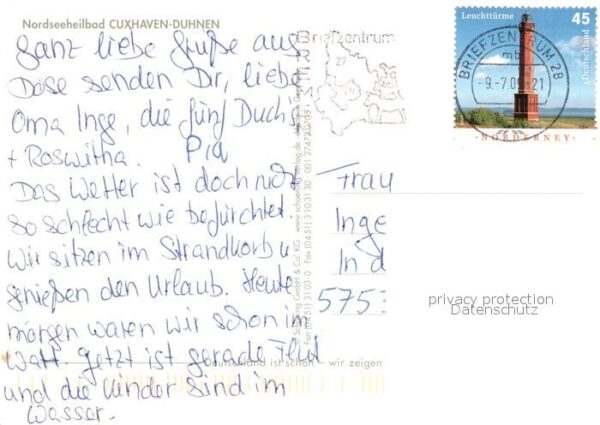 Nordseeheilbad CUXHAVEN-DUHNEN
Ganz liebe Grüße aus
Döse senden Dir, liebe
Oma Inge, die fünf Duch's
+ Roswitha. Pia
Das Wetter ist doch nicht
so schlecht wie befürchtet.
Wir sitzen im Strandkorb u.
genießen den Urlaub. Heute
morgen waren wir schon im
Watt. Jetzt ist gerade Flut
und die Kinder sind im
Wasser.
Deutschland ist schön - wir zeigen
Briefzentrum
27
BRIEFZENTRUM 28
mb
-9.-7.09-21
Leuchttürme 45
Deutschland
NORDERNEY
Frau
Inge
In d
5753
privacy protection
Datenschutz